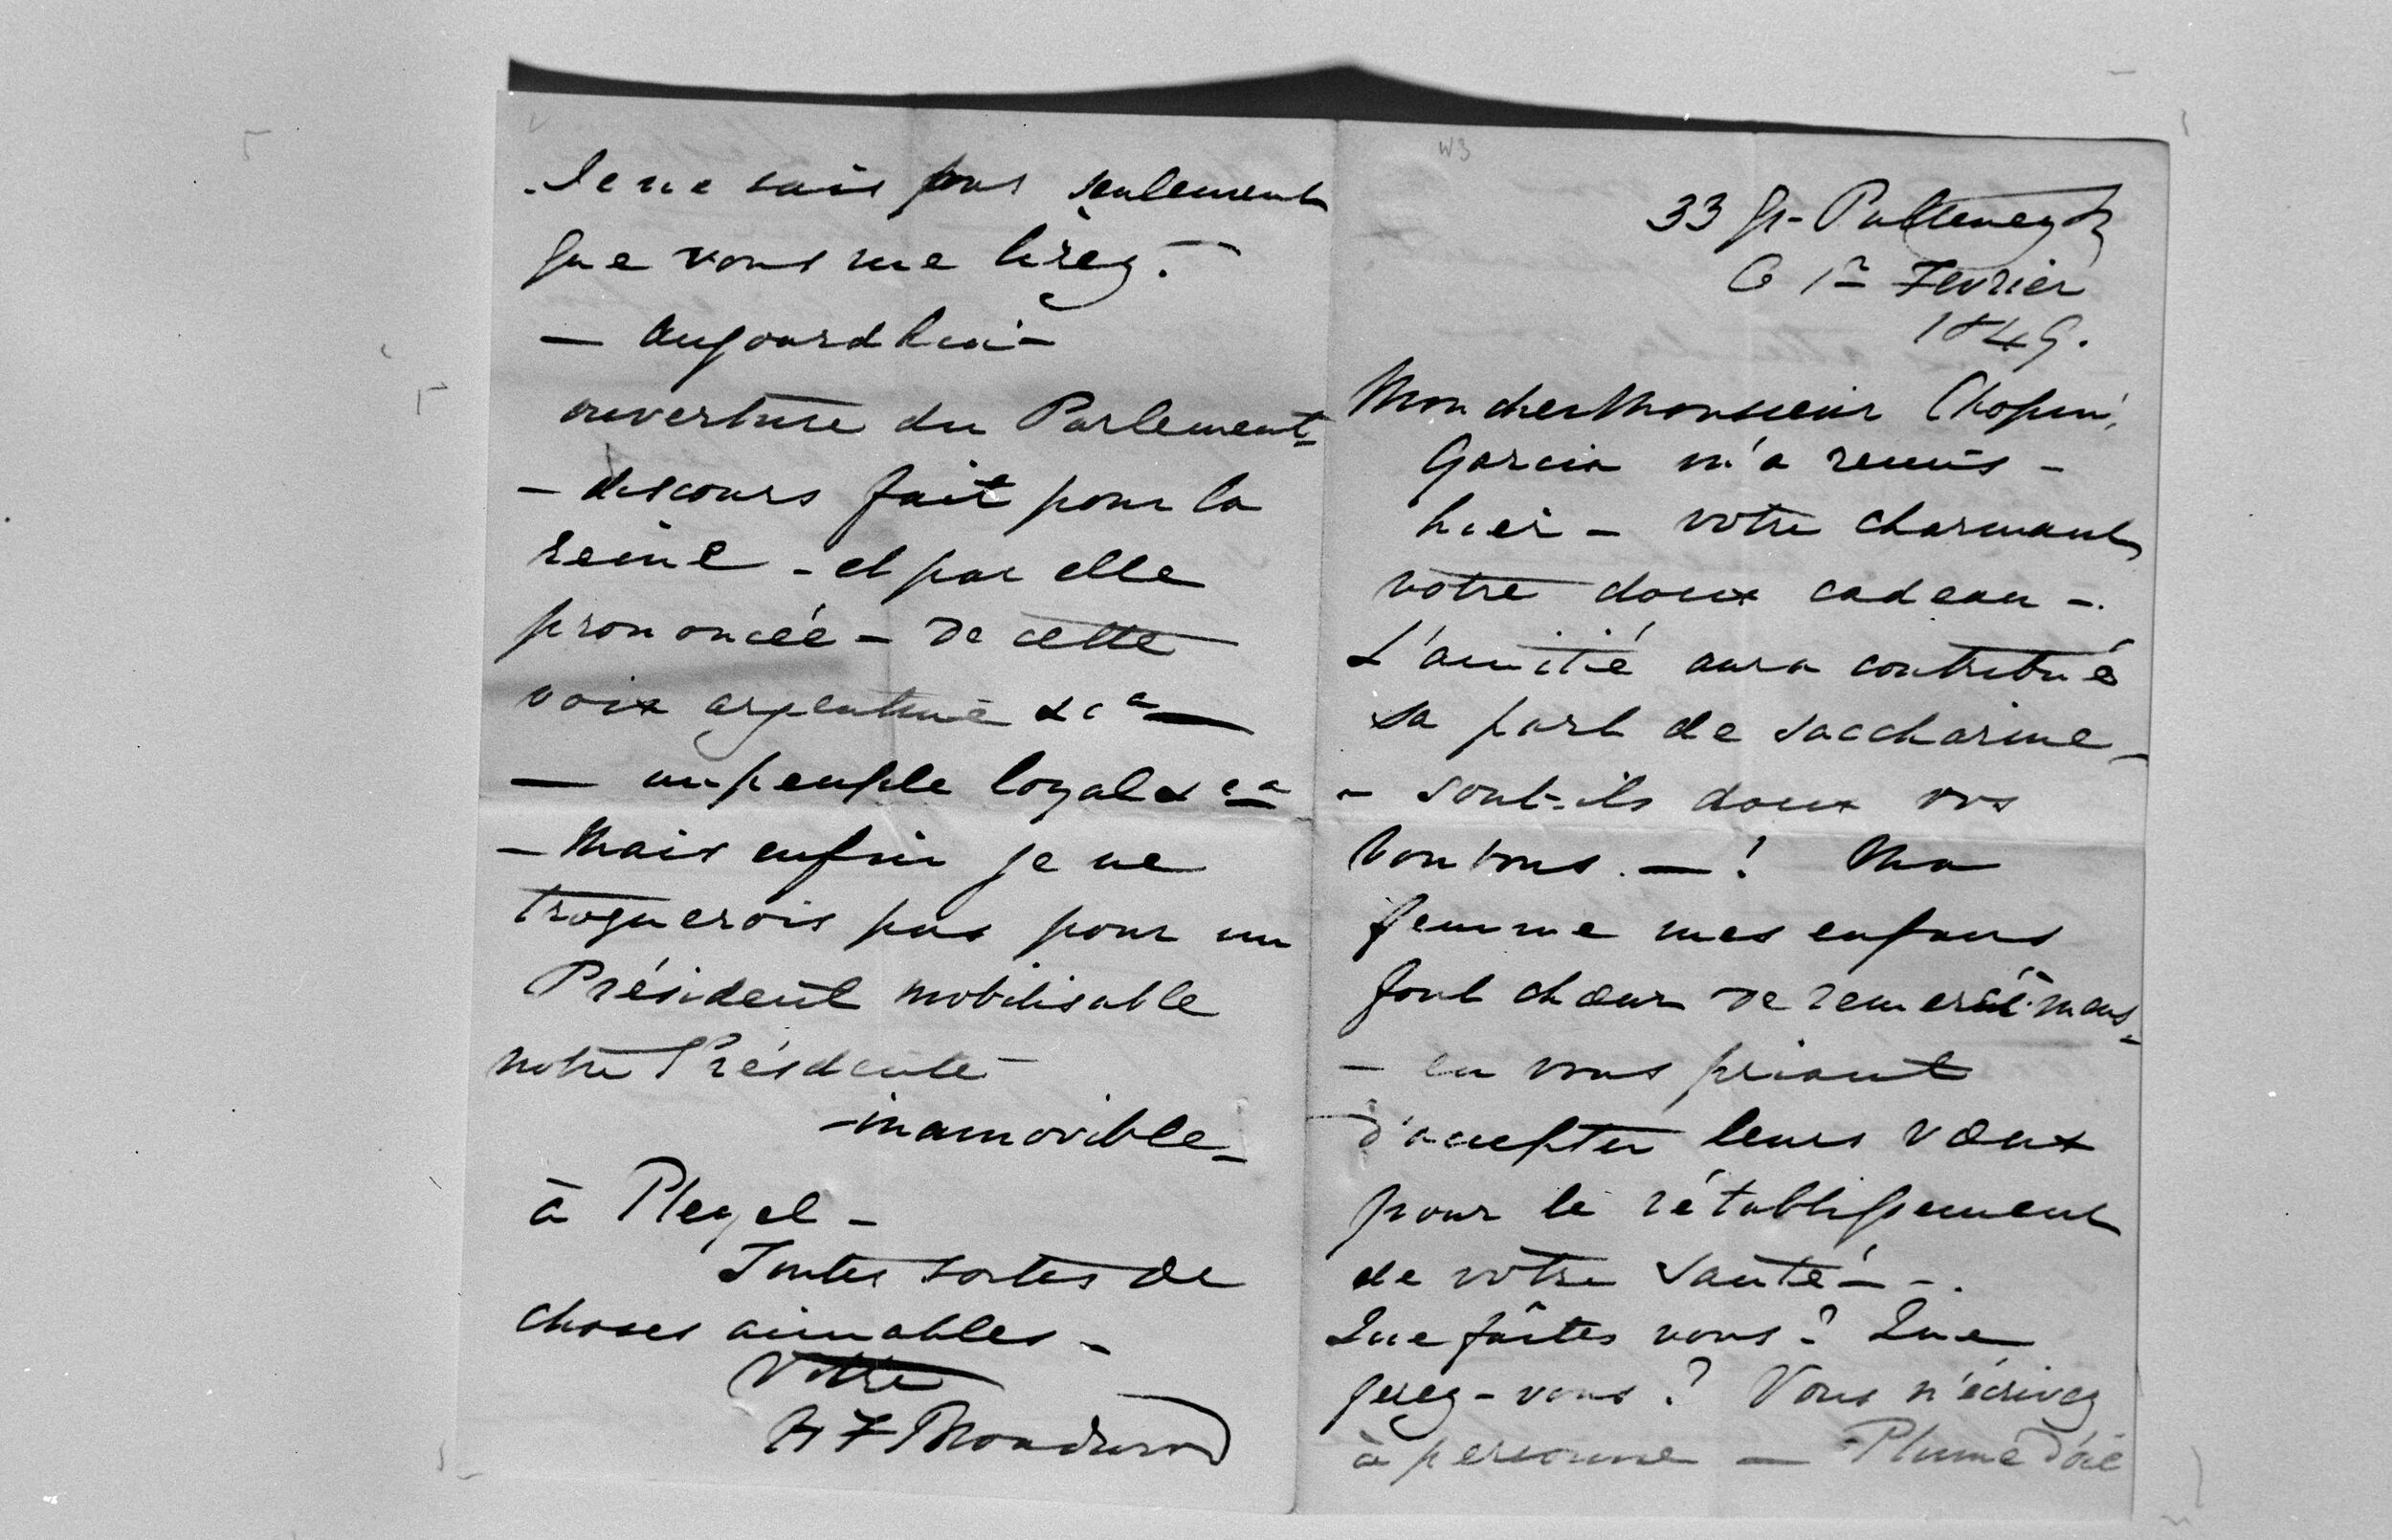 W3
33 Gt- Pulteney St
Le 1er Fevrier
1849.
Mon cher Monsieur Chopin,
Garcia m'a remis -
hier - votre charmant
votre doux cadeau -.
L'amitié aura contribué
sa part de saccharine -
- sont-ils doux vos
bonbons. — ! Ma
femme mes enfans
font chœur de remercîmens -
- en vous priant
d'accepter leurs vœux
pour le rétablissement
de votre santé - -.
Que faîtes vous? Que
ferez-vous? Vous n'écrivez
à personne — Plume d'oie
Je ne sais pas seulement
que vous me lirez. -
- aujourdhui -
ouverture du Parlement -
- discours fait pour la
reine - et par elle
prononcée - de cette
voix argentine &ca —
— un peuple loyal &ca
- Mais enfin je ne
troquerois pas pour un
Président mobilisable
notre Présidente
- inamovible -
à Pleyel -
Toutes sortes de
choses aimables -
Votre